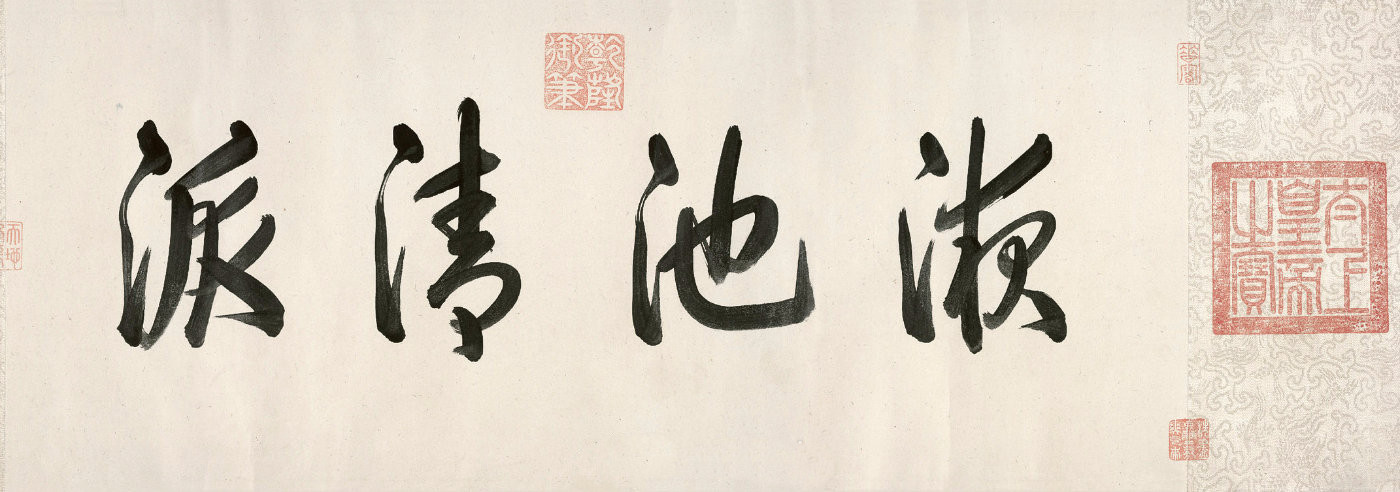 太上皇帝之寶
液池清派
乾隆御筆